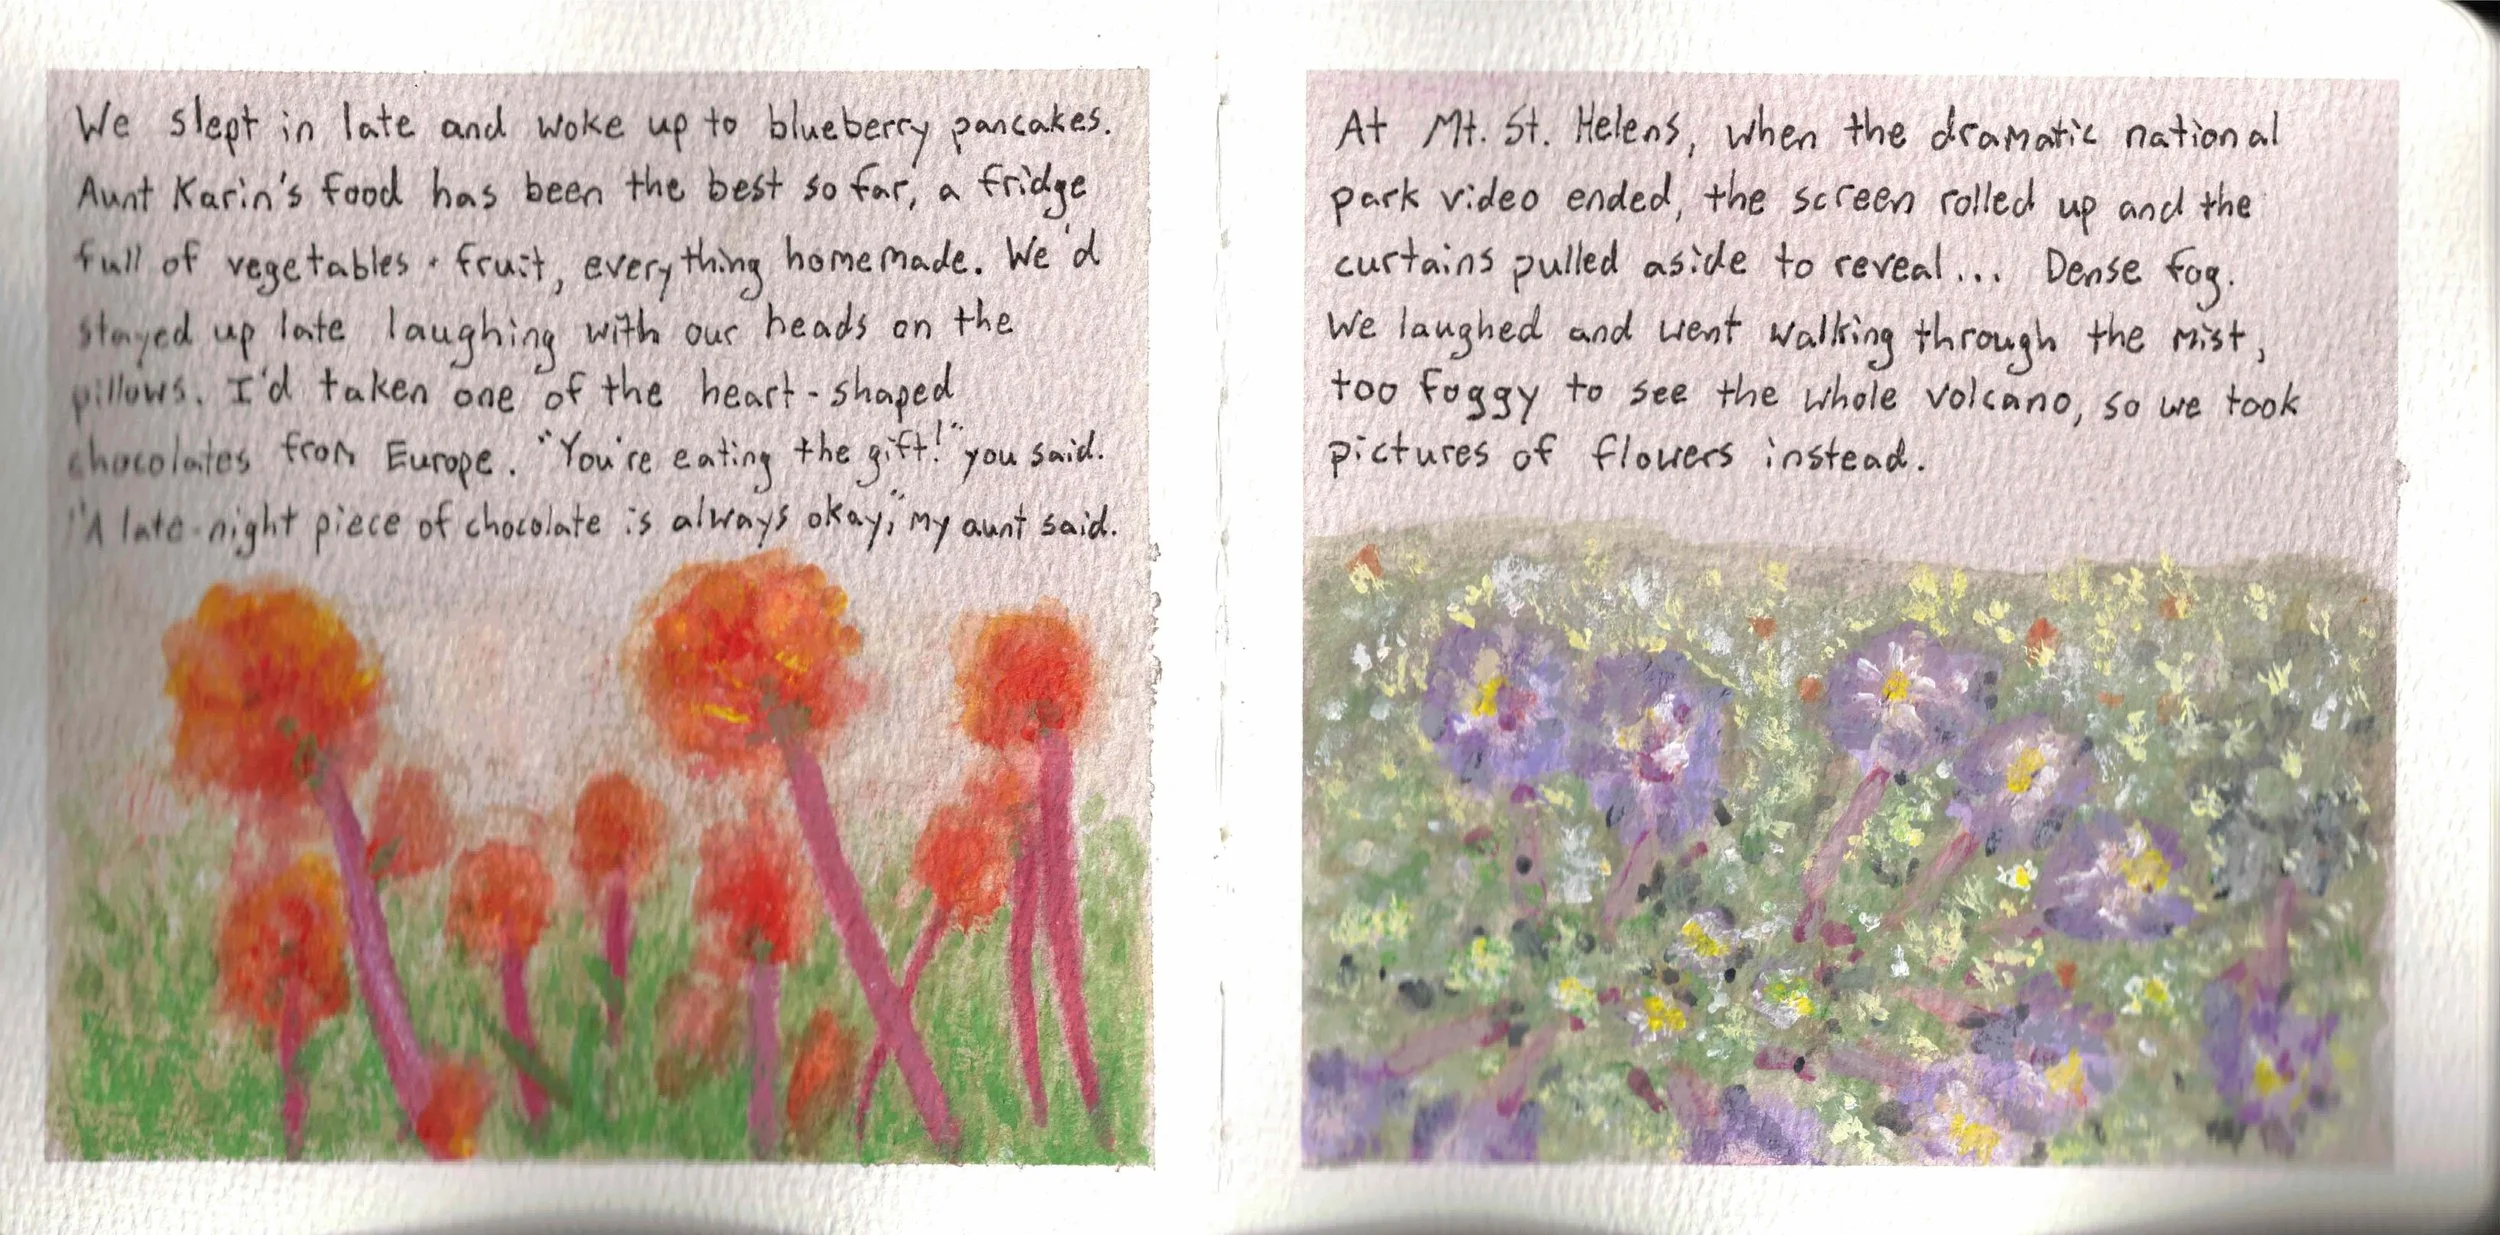 We slept in late and woke up to blueberry pancakes.
Aunt Karin's food has been the best so far, a fridge
full of vegetables + fruit, everything homemade. We'd
stayed up late laughing with our heads on the
pillows. I'd taken one of the heart-shaped
chocolates from Europe. "You're eating the gift!" you said.
"A late-night piece of chocolate is always okay," my aunt said.
At Mt. St. Helens, when the dramatic national
park video ended, the screen rolled up and the
curtains pulled aside to reveal... Dense fog.
We laughed and went walking through the mist,
too foggy to see the whole volcano, so we took
pictures of flowers instead.